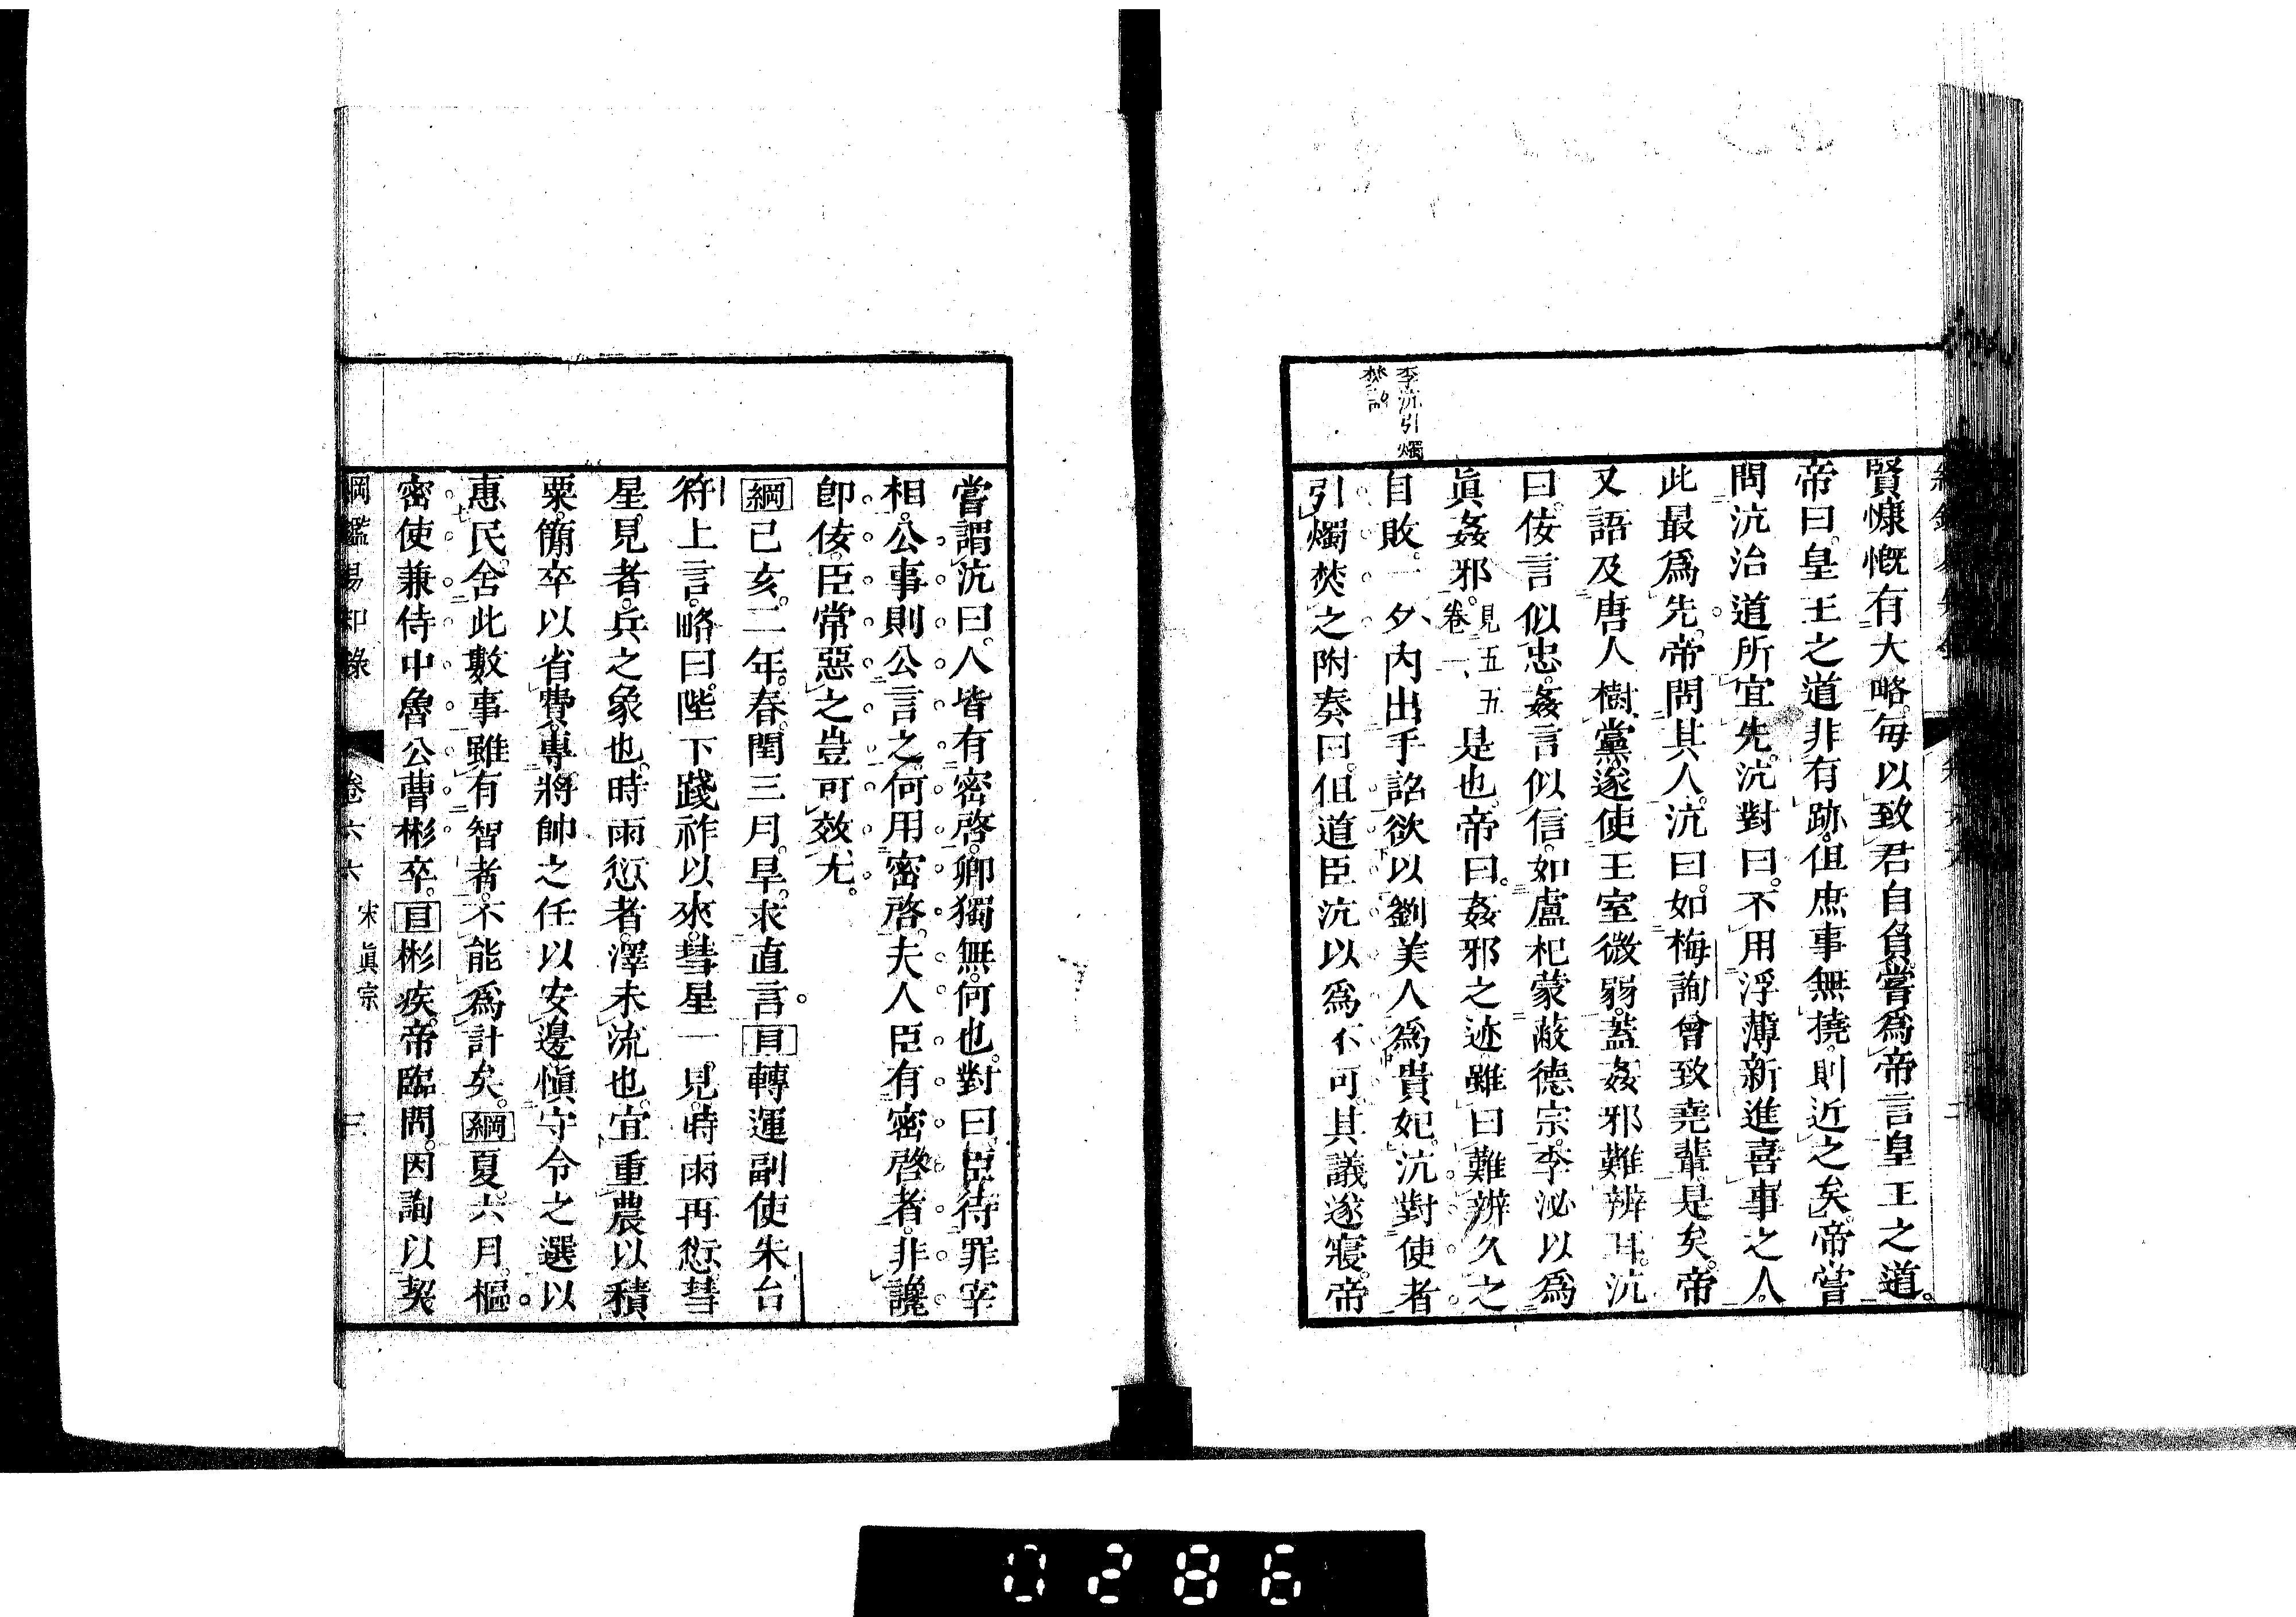 賢慷慨有大略。每以致君自負。嘗爲帝言皇王之道。
帝曰。皇王之道非有跡。但庶事無撓。則近之矣。帝嘗
問沆治道所宜先。沆對曰。不用浮薄新進喜事之人。
此最爲先。帝問其人。沆曰。如梅詢曾致堯輩是矣。帝
又語及唐人樹黨。遂使王室微弱。蓋姦邪難辨耳。沆
曰。侫言似忠。姦言似信。如盧杞蒙蔽德宗。李泌以爲
眞姦邪。見五五卷一、是也。帝曰。姦邪之迹。雖曰難辨。久之
自敗。一夕、內出手詔。欲以劉美人爲貴妃。沆對使者
引燭焚之。附奏曰。但道臣沆以爲不可。其議遂寢。帝
李沆引燭
焚詔
嘗謂沆曰。人皆有密啓。卿獨無。何也。對曰。臣待罪宰
相。公事則公言之。何用密啓。夫人臣有密啓者。非讒
卽侫。臣常惡之。豈可效尤。
綱己亥。二年。春。閏三月。旱。求直言。目轉運副使朱台
符上言。略曰。陛下踐祚以來。彗星一見。時雨再愆。彗
星見者。兵之象也。時雨愆者。澤未流也。宜重農以積
粟。簡卒以省費。專將帥之任以安邊。愼守令之選以
惠民。舍此數事。雖有智者。不能爲計矣。綱夏。六月。樞
密使兼侍中魯公曹彬卒。目彬疾。帝臨問。因詢以契
綱鑑易知錄 卷六六 宋眞宗 三
0286